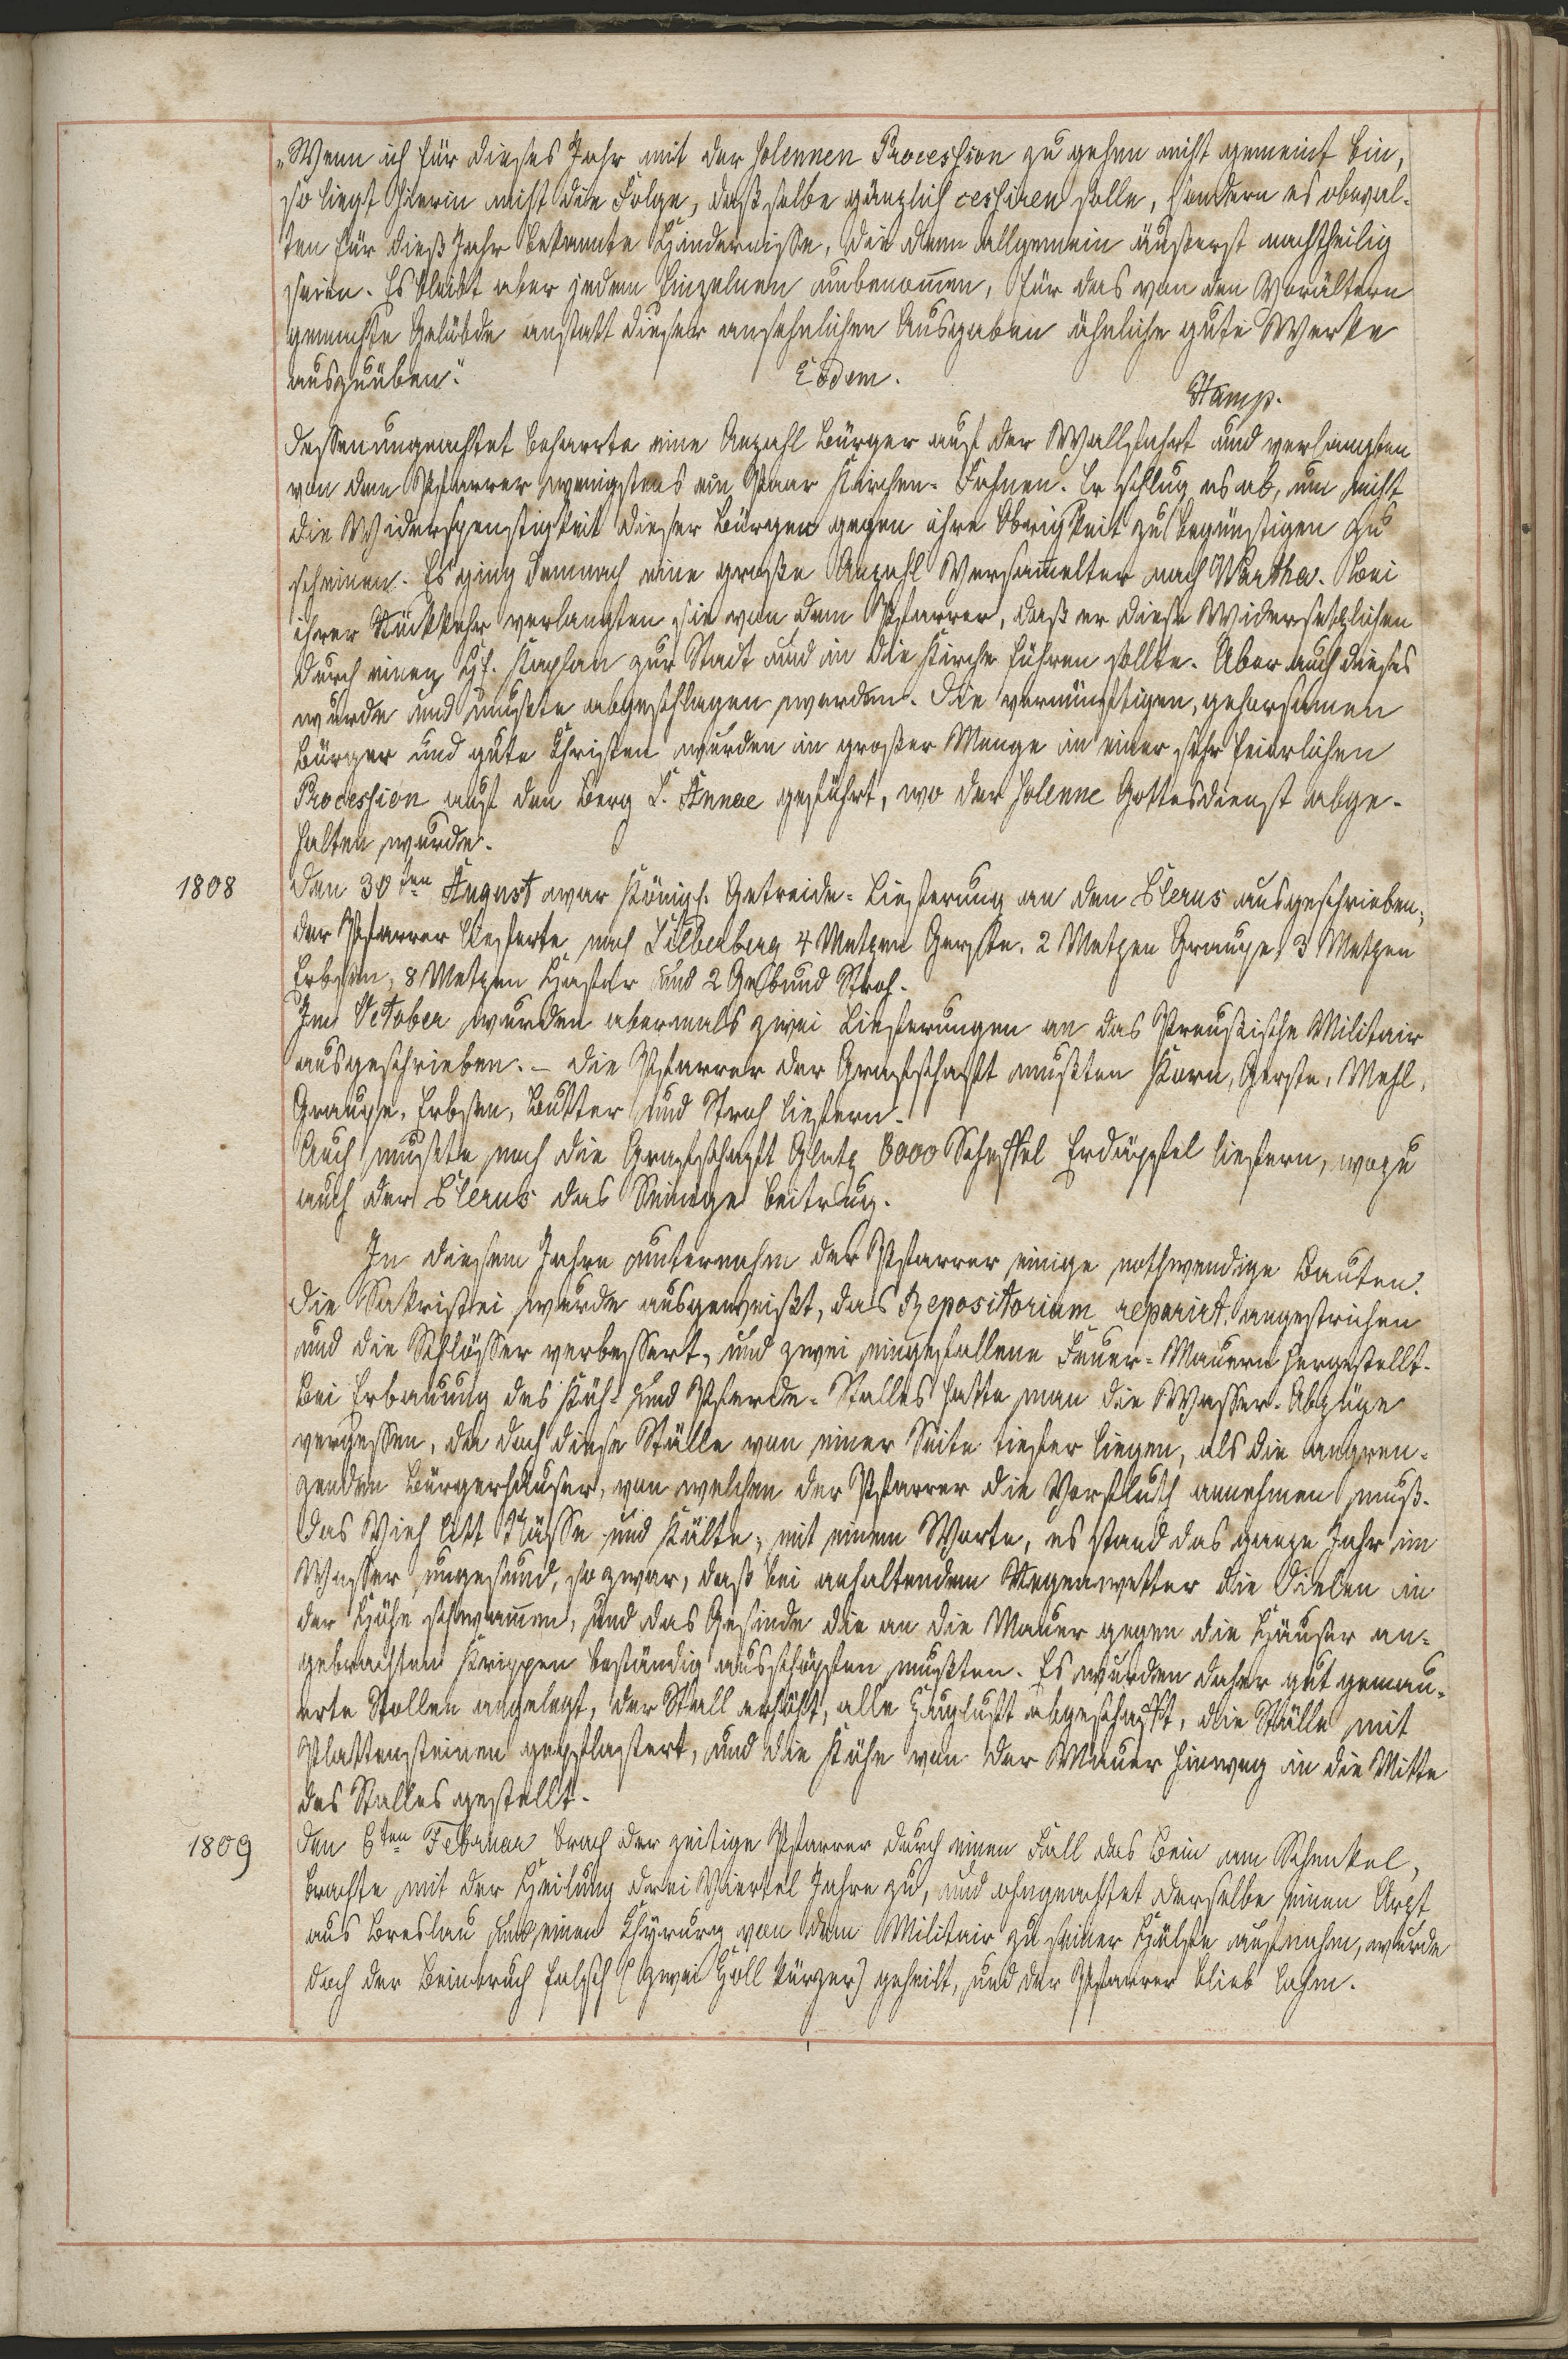 „Wenn ich für dieses Jahr mit der solennen Procession zu gehen nicht gemeint bin,
so liegt hierin nicht die Folge, daß selbe gänzlich cessiren solle, sondern es obwal-
ten für dieß Jahr bekannte Hindernisse, die dem allgemein äußerst nachtheilig
seien. Es bleibt aber jedem Einzelnen unbenom̄en, für das von den Vorältern
gemachte Gelübde anstatt dieser ansehnlichen Ausgaben ähnliche gute Werke
auszuüben.“ Eodem.
Stamp.
Dessenungeachtet beharrte eine Anzahl Bürger auf der Wallfahrt und verlangten
von dem Pfarrer wenigstens ein Paar Kirchen-Fahnen. Er schlug es ab, um nicht
die Widerspenstigkeit dieser Bürger gegen ihre Obrigkeit zu begünstigen zu
scheinen. Es ging demnach eine große Anzahl Versam̄elter nach Wartha. Bei
ihrer Rückkehr verlangten sie von dem Pfarrer, daß er diese Widersetzlichen
durch einen H. Kaplan zur Stadt und in die Kirche führen sollte. Aber auch dieses
wurde und mußte abgeschlagen werden. Die vernünftigen, gehorsamen
Bürger und gute Christen wurden in großer Menge in einer sehr feierlichen
Procession auf den Berg S. Annae geführt, wo der solenne Gottesdienst abge-
halten wurde.
1808 Den 30ten August war Königl. Getreide-Lieferung an den Clerus ausgeschrieben,
der Pfarrer lieferte nach Silberberg 4 Metzen Gerste, 2 Metzen Graupe, 3 Metzen
Erbsen, 8 Metzen Hafer und 2 Gebund Stroh.
Im October wurden abermals zwei Lieferungen an das Preußische Militair
ausgeschrieben. – Die Pfarrer der Grafschaft mußten Korn, Gerste, Mehl,
Graupe, Erbsen, Butter und Stroh liefern.
Auch mußte noch die Grafschaft Glatz 6000 Scheffel Erdäpfel liefern, wozu
auch der Clerus das Seinige beitrug.
In diesem Jahre unternahm der Pfarrer einige nothwendige Bauten.
Die Sakristei wurde ausgeweißt, das Repositorium reparirt, angestrichen
und die Schlösser verbessert, und zwei eingefallene Feuer-Mauern hergestellt.
Bei Erbauung des Küh- und Pferde-Stalles hatte man die Wasser-Abzüge
vergessen, da doch diese Ställe von einer Seite tiefer liegen, als die angren-
zenden Bürgerhäuser, von welchen der Pfarrer die Vorfluth annehmen muß.
Das Vieh litt Nässe und Kälte, mit einem Worte, es stand das ganze Jahr im
Wasser ungesund, so zwar, daß bei anhaltendem Regenwetter die Dielen in
der Höhe schwam̄en, und das Gesinde die an die Mauer gegen die Häuser an-
gebrachten Krippen beständig ausschöpfen mußten. Es wurden daher gut gemau-
erte Stollen angelegt, der Stall erhöht, alle Zugluft abgeschafft, die Ställe mit
Plattensteinen gepflastert, und die Kühe von der Mauer hinweg in die Mitte
des Stalles gestellt.
1809 Den 6ten Februar brach der zeitige Pfarrer durch einen Fall das Bein am Schenkel,
brachte mit der Heilung drei Viertel Jahre zu, und ohngeachtet derselbe einen Arzt
aus Breslau und einen Chyrurg von dem Militair zu seiner Hülfe aufnahm, wurde
doch der Beinbruch falsch (zwei Zoll kürzer) geheilt, und der Pfarrer blieb lahm.